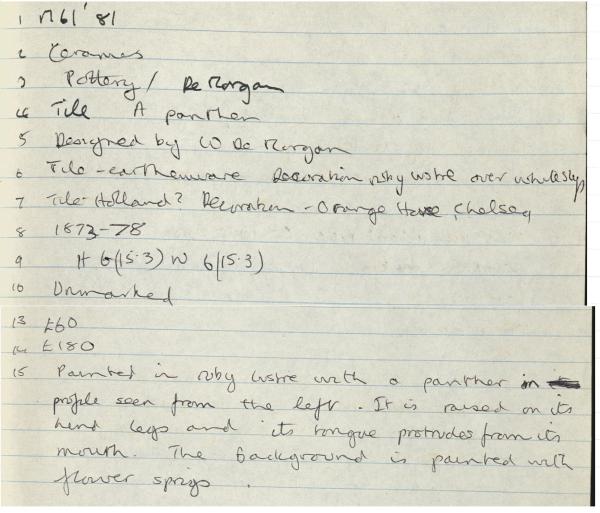 1 M61'81
2 Ceramics
3 Pottery / De Morgan
4 Tile A panther
5 Designed by W De Morgan
6 Tile - earthenware Decoration ruby lustre over white slip
7 Tile: Holland? Decoration - Orange House, Chelsea
8 1873-78
9 H 6(15.3) W 6(15.3)
10 Unmarked
13 £60
14 £180
15 Painted in ruby lustre with a panther in
profile seen from the left. It is raised on its
hind legs and its tongue protrudes from its
mouth. The background is painted with
flower sprigs.